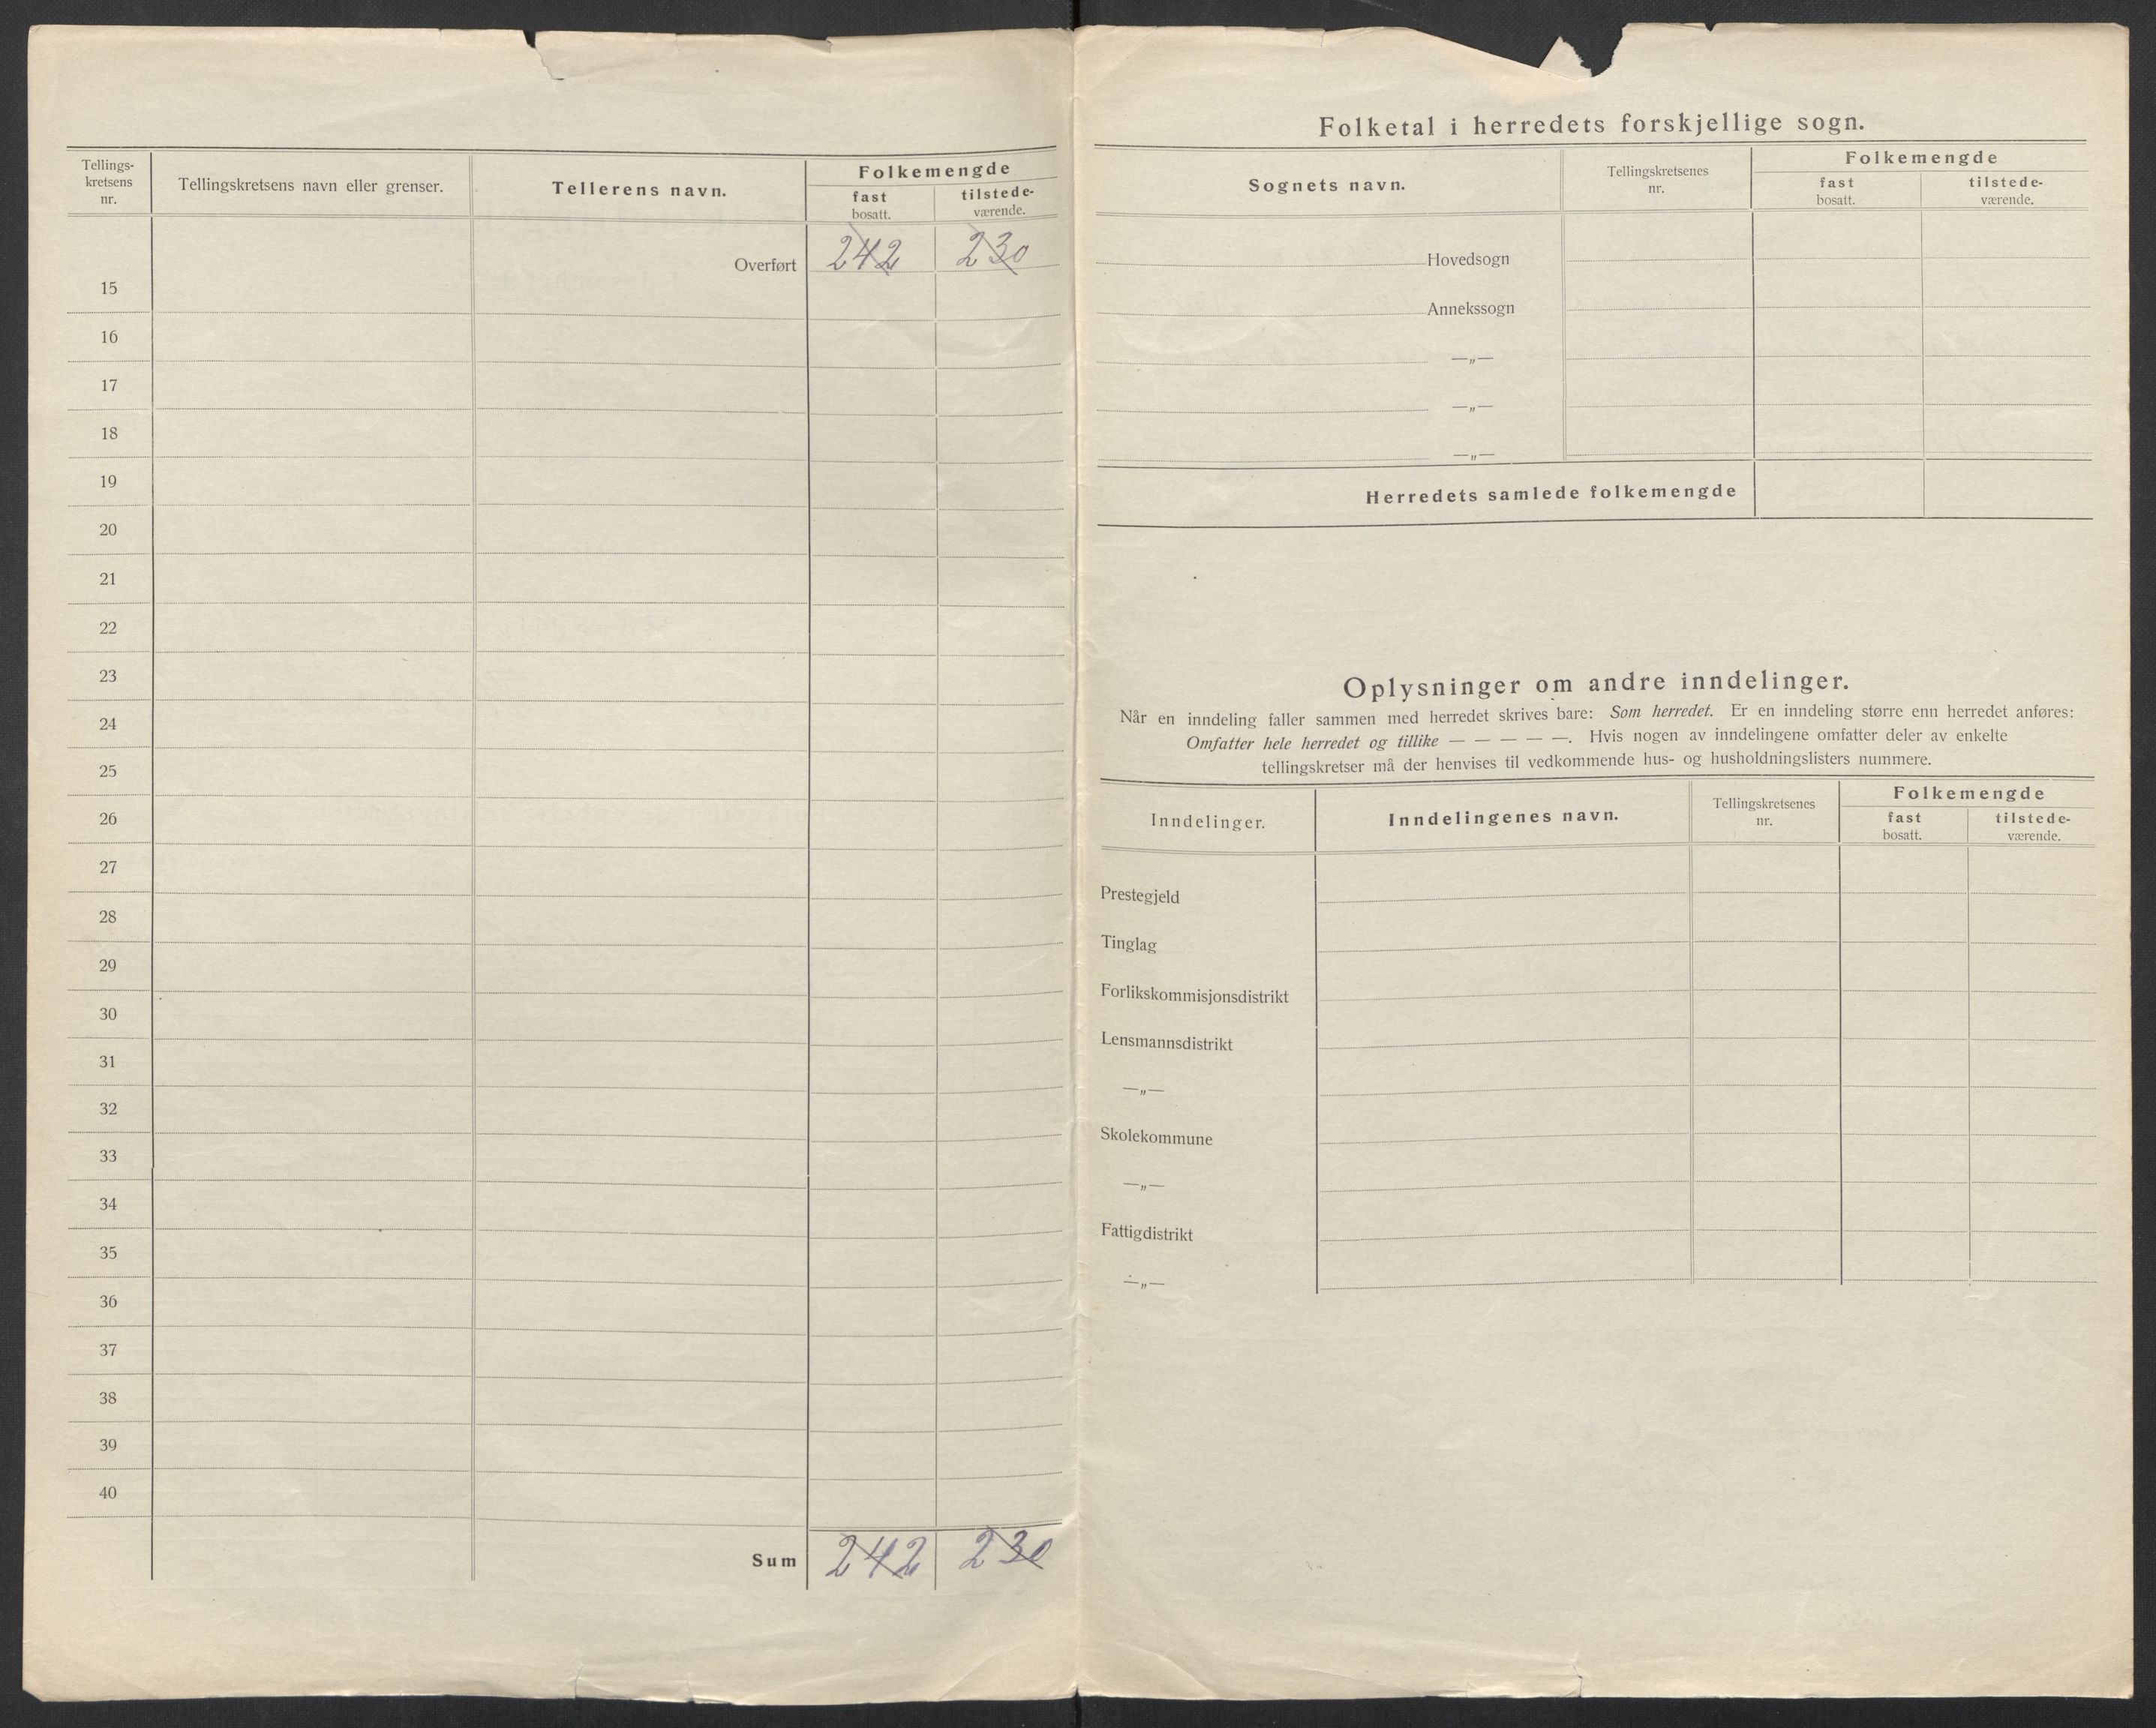 Tellings-
kretsens
nr.
Tellingskretsens navn eller grenser.
Tellerens navn.
Folkemengde
fast
bosatt.
tilstede-
værende.
Overført 242 230
15
16
17
18
19
20
21
22
23
24
25
26
27
28
29
30
31
32
33
34
35
36
37
38
39
40
Sum 242 230
Folketal i herredets forskjellige sogn.
Sognets navn.
Tellingskretsenes
nr.
Folkemengde
fast
bosatt.
tilstede-
værende.
Hovedsogn
Annekssogn
—„—
—„—
—„—
Herredets samlede folkemengde
Oplysninger om andre inndelinger.
Når en inndeling faller sammen med herredet skrives bare: Som herredet. Er en inndeling større enn herredet anføres:
Omfatter hele herredet og tillike — — — — —. Hvis nogen av inndelingene omfatter deler av enkelte
tellingskretser må der henvises til vedkommende hus- og husholdningslisters nummere.
Inndelinger.
Inndelingenes navn.
Tellingskretsenes
nr.
Folkemengde
fast
bosatt.
tilstede-
værende.
Prestegjeld
Tinglag
Forlikskommisjonsdistrikt
Lensmannsdistrikt
—„—
Skolekommune
—„—
Fattigdistrikt
—„—